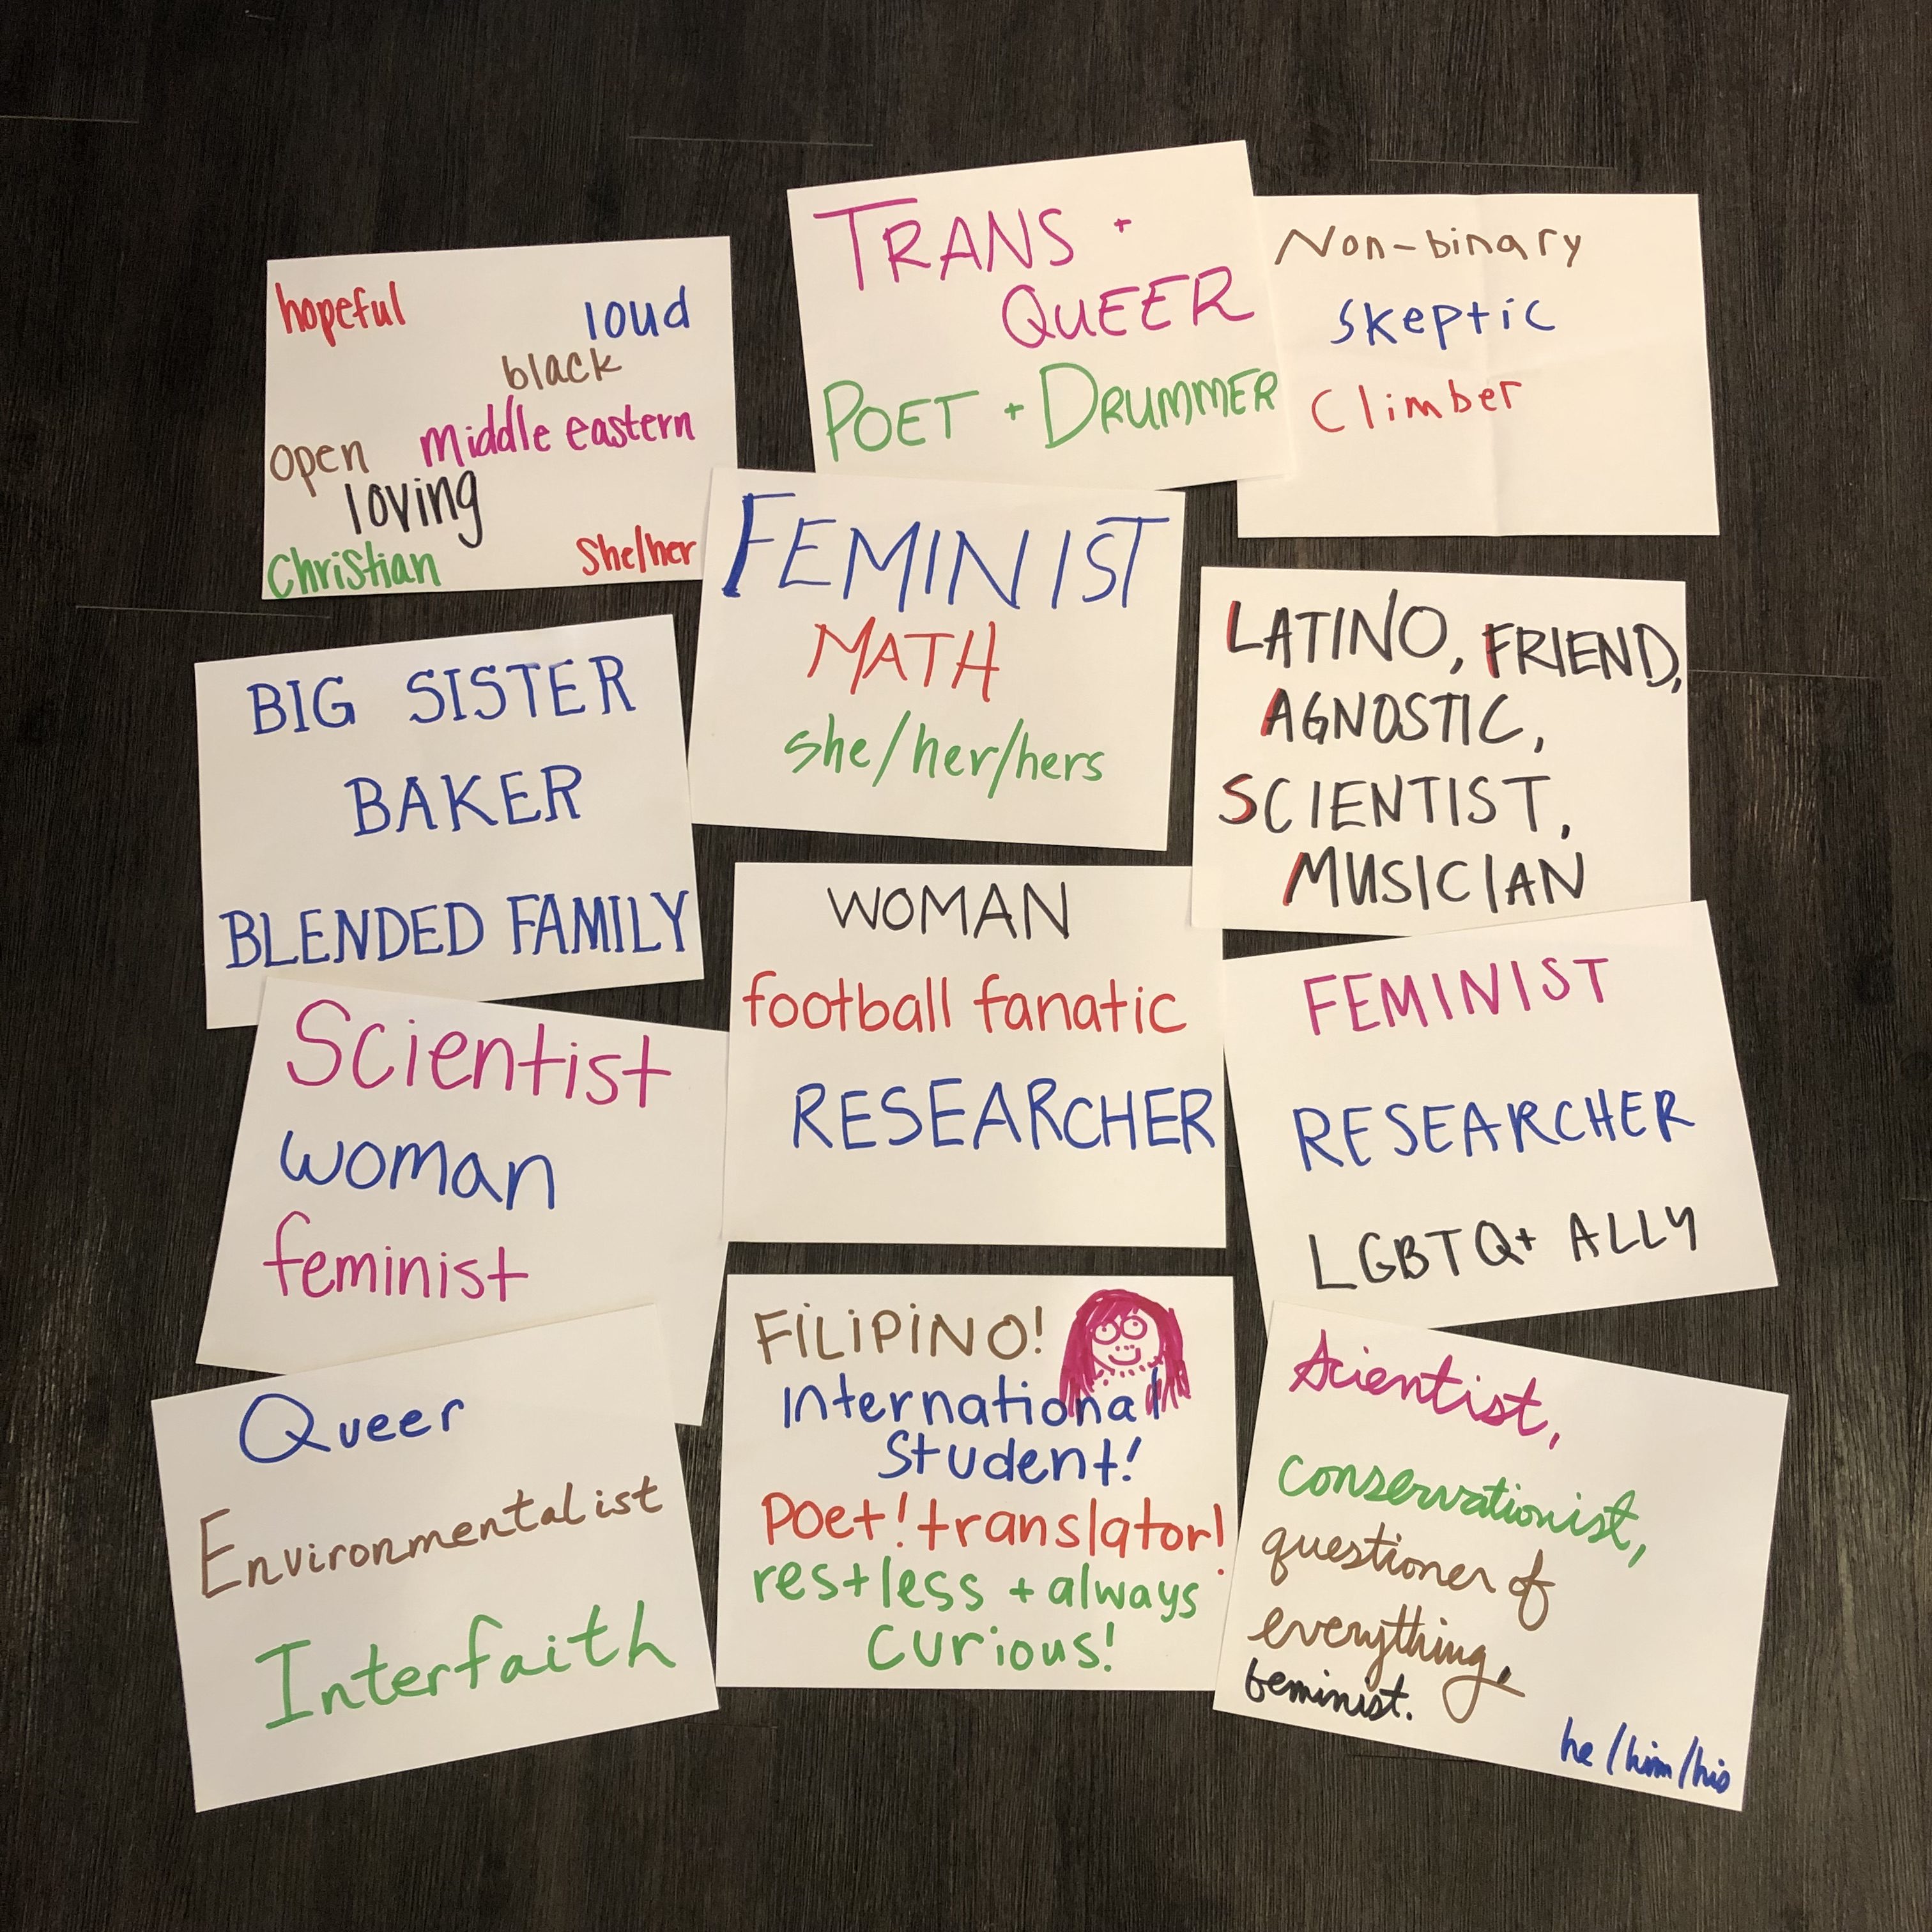 hopeful
loud
black
open middle eastern
loving
Christian
She/her
TRANS +
QUEER
POET + DRUMMER
Non-binary
Skeptic
Climber
FEMINIST
MATH
she/her/hers
BIG SISTER
BAKER
BLENDED FAMILY
LATINO, FRIEND,
AGNOSTIC,
SCIENTIST,
MUSICIAN
WOMAN
football fanatic
RESEARCHER
Scientist
woman
feminist
FEMINIST
RESEARCHER
LGBTQ+ ALLY
Queer
Environmentalist
Interfaith
FILIPINO!
International
Student!
Poet! translator!
restless + always
curious!
Scientist,
conservationist,
questioner of
everything,
feminist.
he/him/his